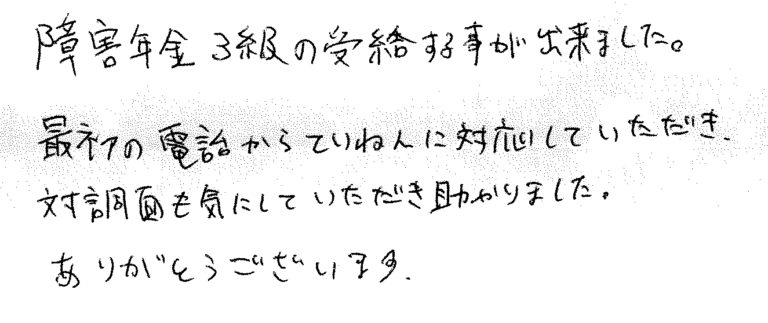 障害年金3級の受給する事が出来ました。
最初の電話からていねんに対応していただき、
対調面も気にしていただき助かりました。
ありがとうございます。